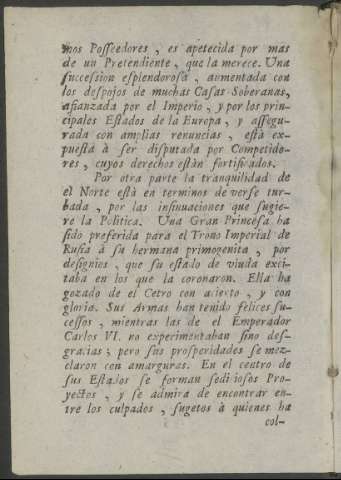 mos Posseedores , es apetecida por mas
de un Pretendiente , que la merece. Una
succession esplendorosa , aumentada con
los despojos de muchas Casas Soberanas,
afianzada por el Imperio , y por los prin-
cipales Estados de la Europa , y assegu-
rada con amplias renuncias , està ex-
puesta à ser disputada por Competido-
res , cuyos derechos estàn fortificados.
Por otra parte la tranquilidad de
el Norte està en terminos de verse tur-
bada , por las insinuaciones que sugie-
re la Politica. Una Gran Princesa ha
sido preferida para el Trono Imperial de
Rusia à su hermana primogenita , por
designios , que su estado de viuda exci-
taba en los que la coronaron. Ella ha
gozado de el Cetro con acierto , y con
gloria. Sus Armas han tenido felices su-
cessos , mientras las de el Emperador
Carlos VI. no experimentaban sino des-
gracias ; pero sus prosperidades se mez-
claron con amarguras. En el centro de
sus Estados se forman sediciosos Pro-
yectos , y se admira de encontrar en-
tre los culpados , sugetos à quienes ha
col-